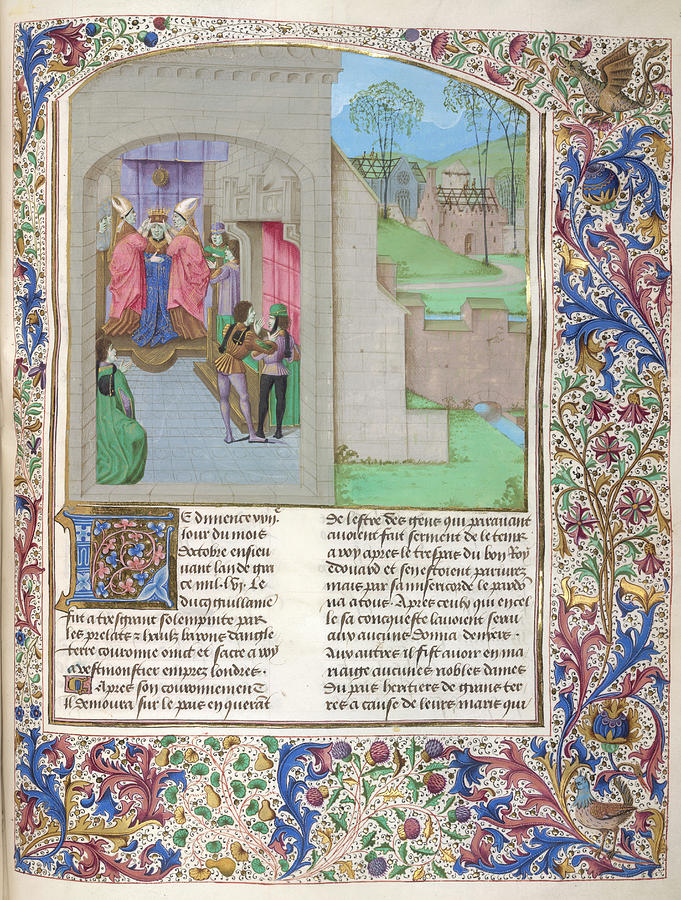 Le dimence viijᵉ
Jour du mois
doctobre ensieu
uant lan de gra
ce mil. lxvj. Le
ducq guillame
fut a tresgrant solempnite par
les prelatz & haulz barons dangle
terre couronne oinct et sacre a roy
a westmonstier emprez londres.
Apres son couronnement
Il demoura sur le pais enquerat
de lestre des gens qui parauant
auoient fait serment de le tenir
a roy apres le trespas du bon Roy
edouard et sen estoient pariurez
mais par sa misericorde le pardon
na a tous. Apres ceulx qui en cel
le sa conqueste lauoient serui
aux aucuns donna deniers.
Aux autres il fist auoir en ma
riaige aucunes nobles dames
du pais heritiere de grans ter
res a cause de leurs maris qui